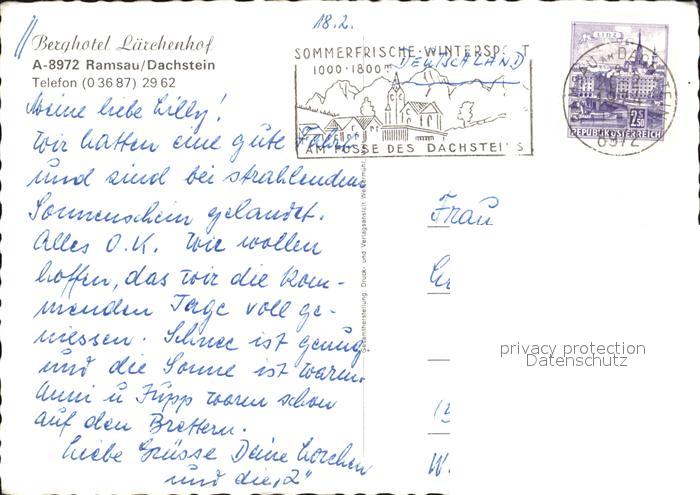 18.2.
Berghotel Lärchenhof
A-8972 Ramsau/Dachstein
Telefon (0 36 87) 29 62
SOMMERFRISCHE·WINTERSPORT
1000-1800m
DEUTSCHLAND
AM FUSSE DES DACHSTEINS
LINZ
2.50
REPUBLIK ÖSTERREICH
8972
Meine liebe Lilly!
Wir hatten eine gute Fahrt
und sind bei strahlendem
Sonnenschein gelandet.
Alles O.K. Wir wollen
hoffen, das wir die kom-
menden Tage voll ge-
niessen. Schnee ist genug
und die Sonne ist warm.
Anni u Jupp waren schon
auf den Brettern.
Liebe Grüsse Deine Lorchen
und die "2"
Frau
W.
privacy protection
Datenschutz